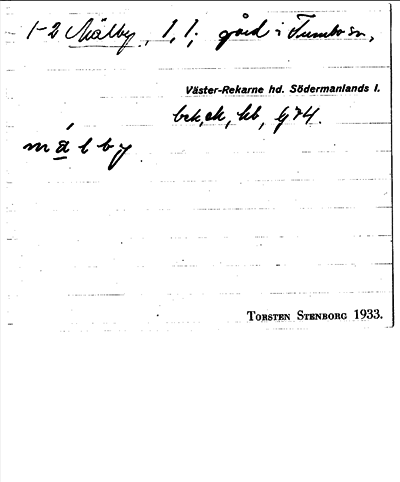 1-2 Mälby, 1, 1, gård i Tumbo sn,
Väster-Rekarne hd. Södermanlands l.
bck, ek, kb, g74.
málby
Torsten Stenborg 1933.